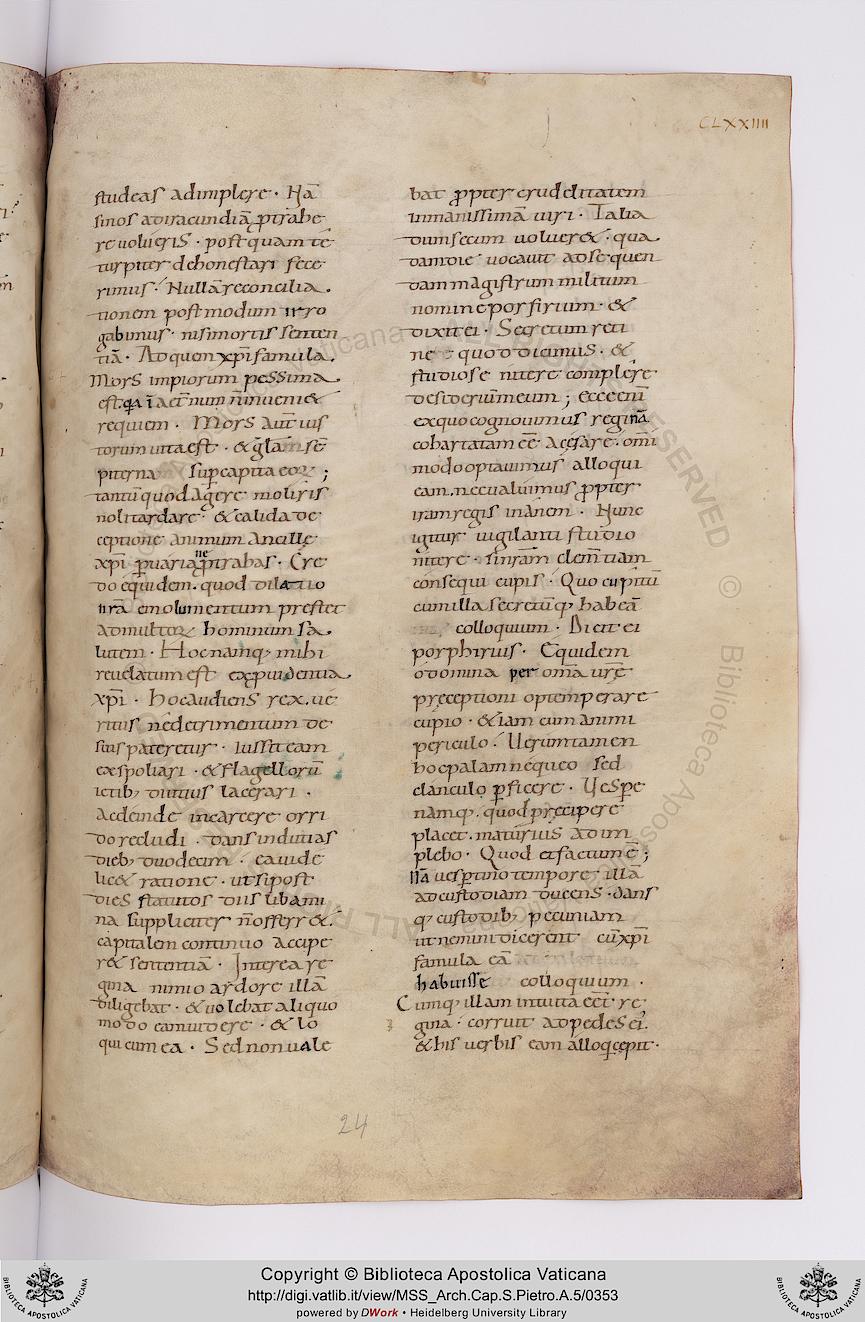 CLXXIIII
studeas adimplere · Nā
sinos adiracundiā ꝓtrahe
re uolueris · postquam te
turpiter dehonestari fece
rimus · Nullā reconcilia
tionem postmodum irro
gabimus · nisi mortis senten
tiā · Ad quen xp̄i famula
Mors impiorum pessima
est · q̄a ī aet̄num n̄ inueni&
requiem · Mors aut̄ ius
torum uita est · & gl̄am sē
piterna sup capita eoꝝ ;
tantū quod agere moliris
noli tardare · & calida de
ceptione animum ancille
xp̄i ꝑ uaria ne ꝓtrahas · Cre
do equidem quod dilatio
n̄ra emolumentum prestet
ad multoꝝ hominum sa
lutem · Hoc namq; mihi
reuelatum est ex ꝓuidentia
xp̄i · hoc audiens rex ue
ritus ne detrimentum de
sius pateretur · iussit eam
exspoliari · & flagellorū
ictib; diutius lacerari ·
Ac deinde in carcere orri
do recludi · dans indutias
dieb; duodecim · ea uide
lic& ratione · ut si post
dies statutos diis libami
na suppliciter n̄ offerr& ·
capitalem continuo accipe
r& sententiā · Interea re
gina nimio ardore illā
diligebat · & uolebat aliquo
modo eam uidere · & lo
qui cum ea · Sed non uale
bat ꝓpter crudelitatem
inmanissimā uiri · Talia
dum secum uoluer& · qua
dam die uocauit ad se quen
dam magistrum militum
nomine porfirium · &
dixit ei · Secretum reti
ne quod dicimus · &
studiose nitere complere
desiderium meum ; ecce eni
ex quo cognouimus reginā
cohartatam eē a cesare · omi
modo optauimus alloqui
eam · nec ualuimus ꝓpter
iram regis inanem · Hunc
igitur uigilanti studio
nitere · si nr̄am clem̄tiam
consequi cupis · Quo cupitū
cum illa secretūq; habeā
colloquium · Dicit ei
porphirius · Equidem
o domina per om̄a ur̄e
preceptioni optemperare
cupio · & iam cum animi
periculo · Uerumtamen
hoc palam nequeo sed
clanculo ꝑficere · Uespe
namq; quod precipere
placet · maturius adim
plebo · Quod et factum ē ;
Nā uesꝑtino tempore illā
ad custodiam ducens · dans
q; custodib; pecuniam
ut nemini dicerent cū xp̄i
famula eā
habuisse colloquium ·
Cumq; illam intuita eēt re
gina · corruit ad pedes ei ·
& his uerbis eam alloqi cepit ·
24
Copyright © Biblioteca Apostolica Vaticana
http://digi.vatlib.it/view/MSS_Arch.Cap.S.Pietro.A.5/0353
powered by DWork • Heidelberg University Library
BIBLIOTECA APOSTOLICA VATICANA
BIBLIOTECA APOSTOLICA VATICANA